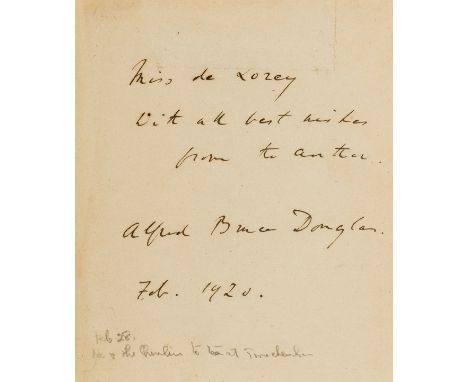 Miss de Lorey
With all best wishes
from the author.
Alfred Bruce Douglas.
Feb. 1920.
Feb 28.
to tea at Twickenham